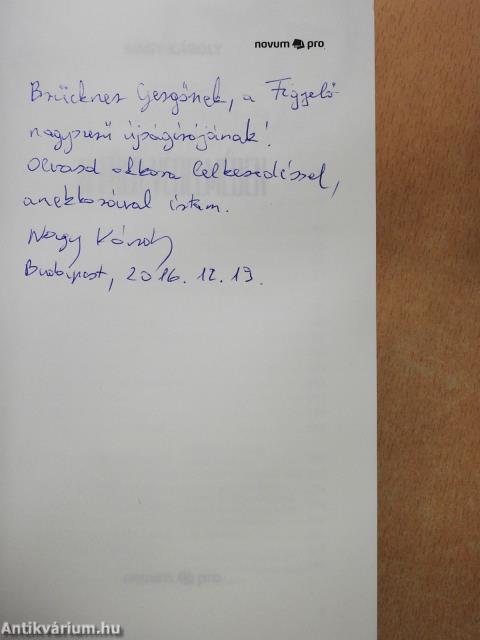 novum pro
Brückner Gergőnek, a Figyelő
nagyszerű újságírójának!
Olvasd akkora lelkesedéssel,
amekkorával írtam.
Nagy Károly
Budapest, 2016. 12. 19.
novum pro
Antikvárium.hu